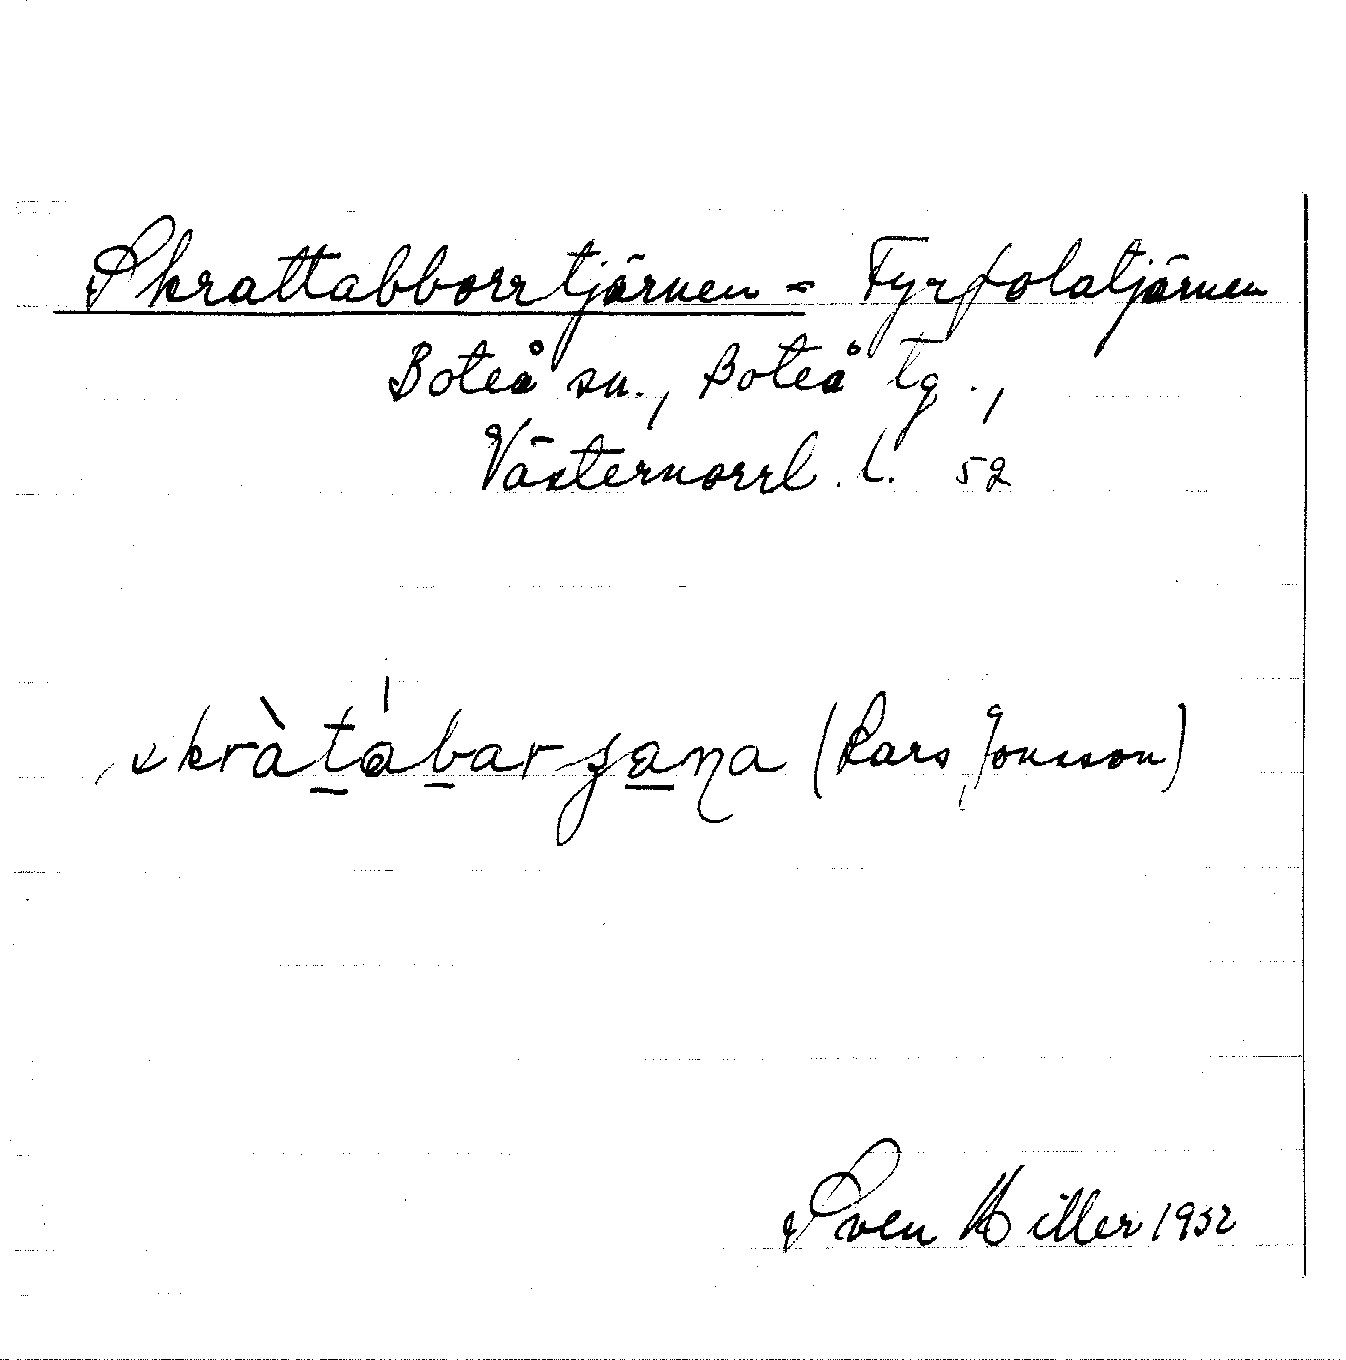 Skrattabborrtjärnen = Fyrfolatjärnen
Boteå sn., Boteå tg.,
Västernorrl. l. 52
skràtábarʂaɳa (Lars Jonsson)
Sven Hiller 1932